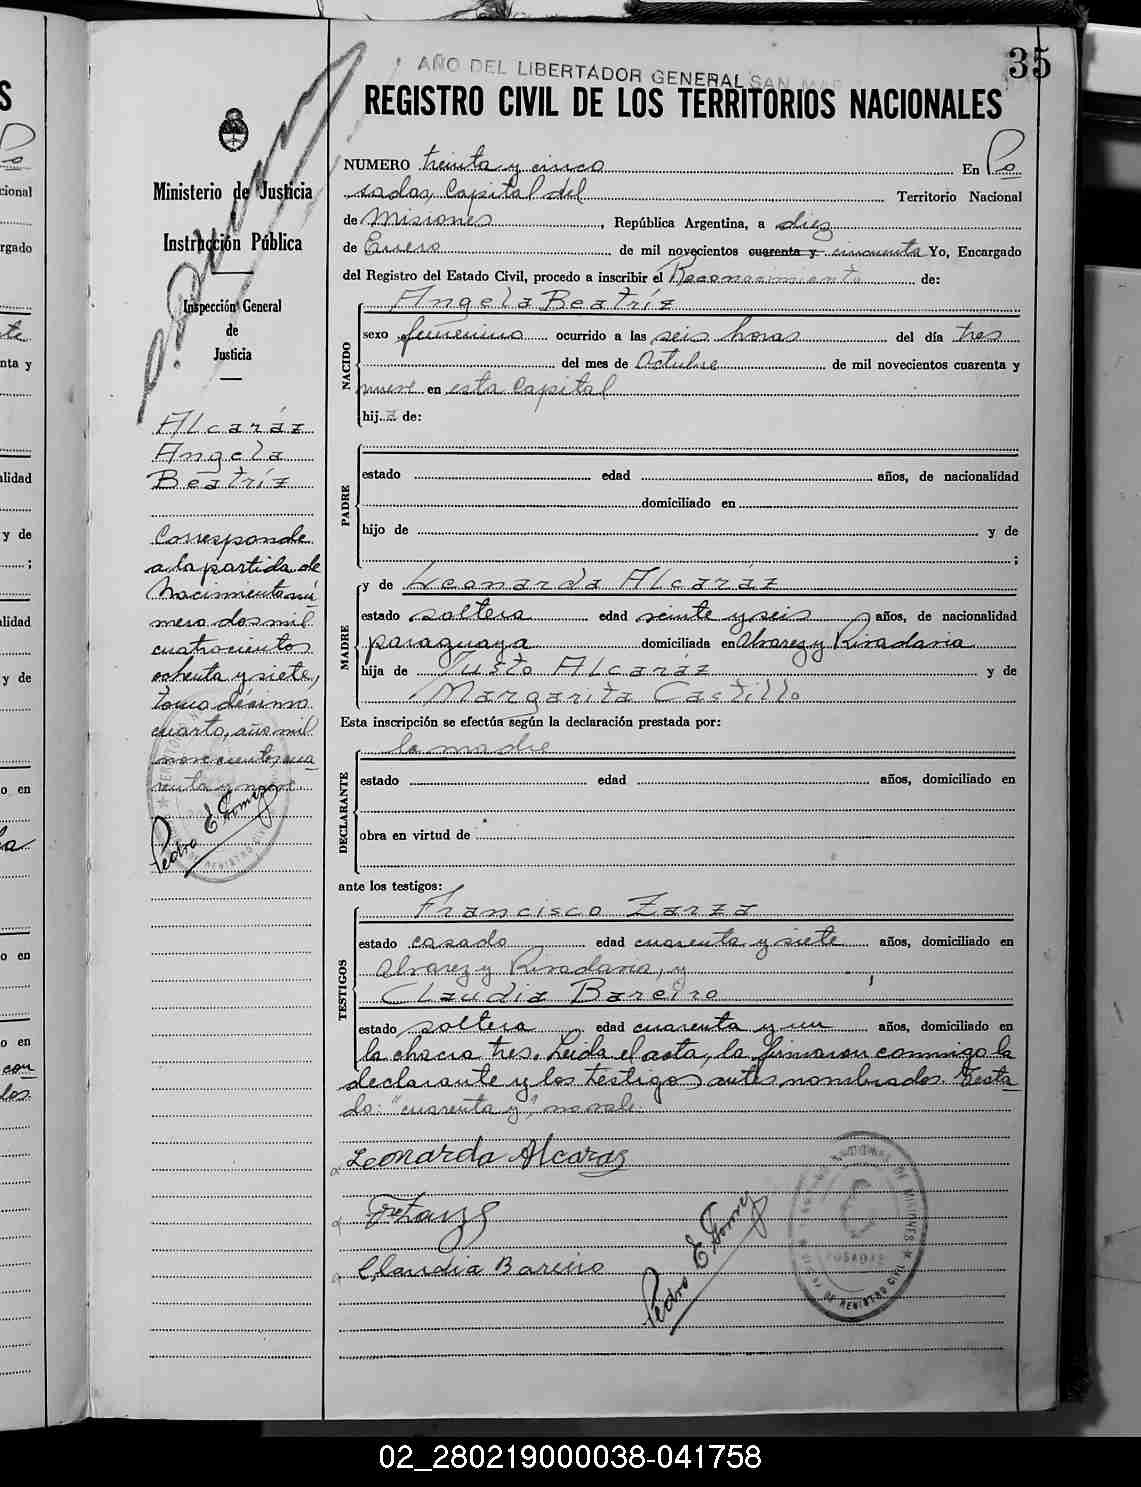 AÑO DEL LIBERTADOR GENERAL SAN MAR
35
REGISTRO CIVIL DE LOS TERRITORIOS NACIONALES
NUMERO treinta y cinco En Po
sadas, Capital del Territorio Nacional
de Misiones, República Argentina, a diez
de Enero de mil novecientos cuarenta y cincuenta Yo, Encargado
del Registro del Estado Civil, procedo a inscribir el Reconocimiento de:
NACIDO
Angela Beatríz
sexo femenino ocurrido a las seis horas del día tres
del mes de Octubre de mil novecientos cuarenta y
nueve en esta Capital
hija de:
PADRE
estado edad años, de nacionalidad
domiciliado en
hijo de y de
;
MADRE
y de Leonarda Alcaráz
estado soltera edad veinte y seis años, de nacionalidad
paraguaya domiciliada en Alvarez y Rivadavia
hija de Justo Alcaráz y de
Margarita Castillo
Esta inscripción se efectúa según la declaración prestada por:
DECLARANTE
la madre
estado edad años, domiciliado en
obra en virtud de
ante los testigos:
TESTIGOS
Francisco Zarza
estado casado edad cuarenta y siete años, domiciliado en
Alvarez y Rivadavia, y
Claudia Bareiro
estado soltera edad cuarenta y un años, domiciliado en
la chacra tres. Leida el acta, la firmaron conmigo la
declarante y los testigos antes nombrados. Testa
do: "cuarenta y", no vale.
Leonarda Alcaraz
Claudia Bareiro
Pedro E Gomez
POSADAS
Ministerio de Justicia
e
Instrucción Pública
Inspección General
de
Justicia
Alcaráz
Angela
Beatríz
Corresponde
a la partida de
Nacimiento nú
mero dos mil
cuatrocientos
ochenta y siete,
tomo décimo
cuarto, año mil
novecientos cua
renta y nueve.
Pedro E Gomez
02_280219000038-041758